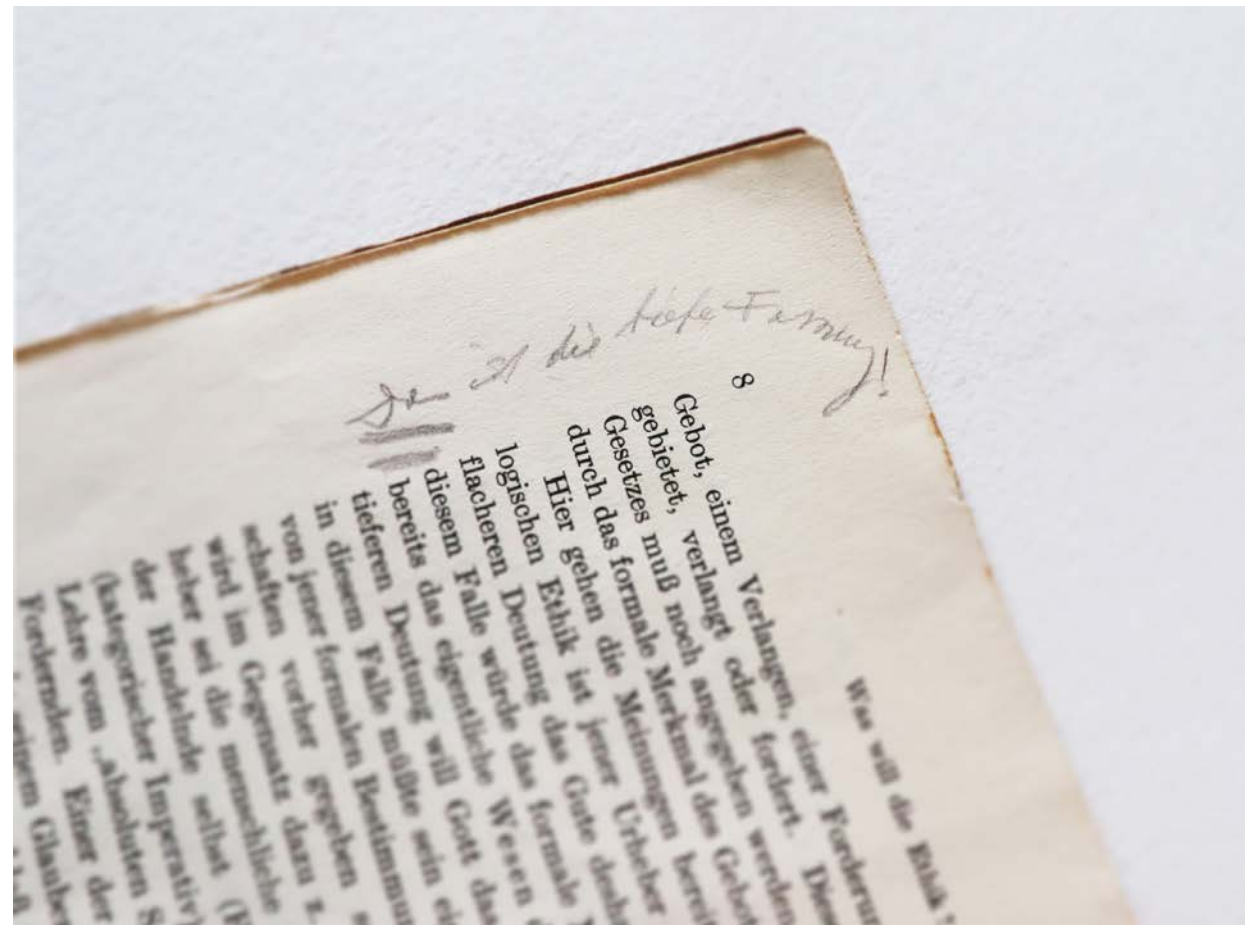 ist die tiefe Fassung!
8 Was will die Ethik
Gebot, einem Verlangen, einer Forderun
gebietet, verlangt oder fordert. Dies
Gesetzes muß noch angegeben werden
durch das formale Merkmal des Gebot
Hier gehen die Meinungen bereit
logischen Ethik ist jener Urheber
flacheren Deutung das Gute desh
diesem Falle würde das formale
bereits das eigentliche Wesen d
tieferen Deutung will Gott das
in diesem Falle müßte sein ei
von jener formalen Bestimmun
schaften vorher gegeben s
wird im Gegensatz dazu z.
heber sei die menschliche
der Handelnde selbst
(kategorischer Imperativ)
Lehre vom „absoluten S
Fordernden. Einer der
seinem Glauben